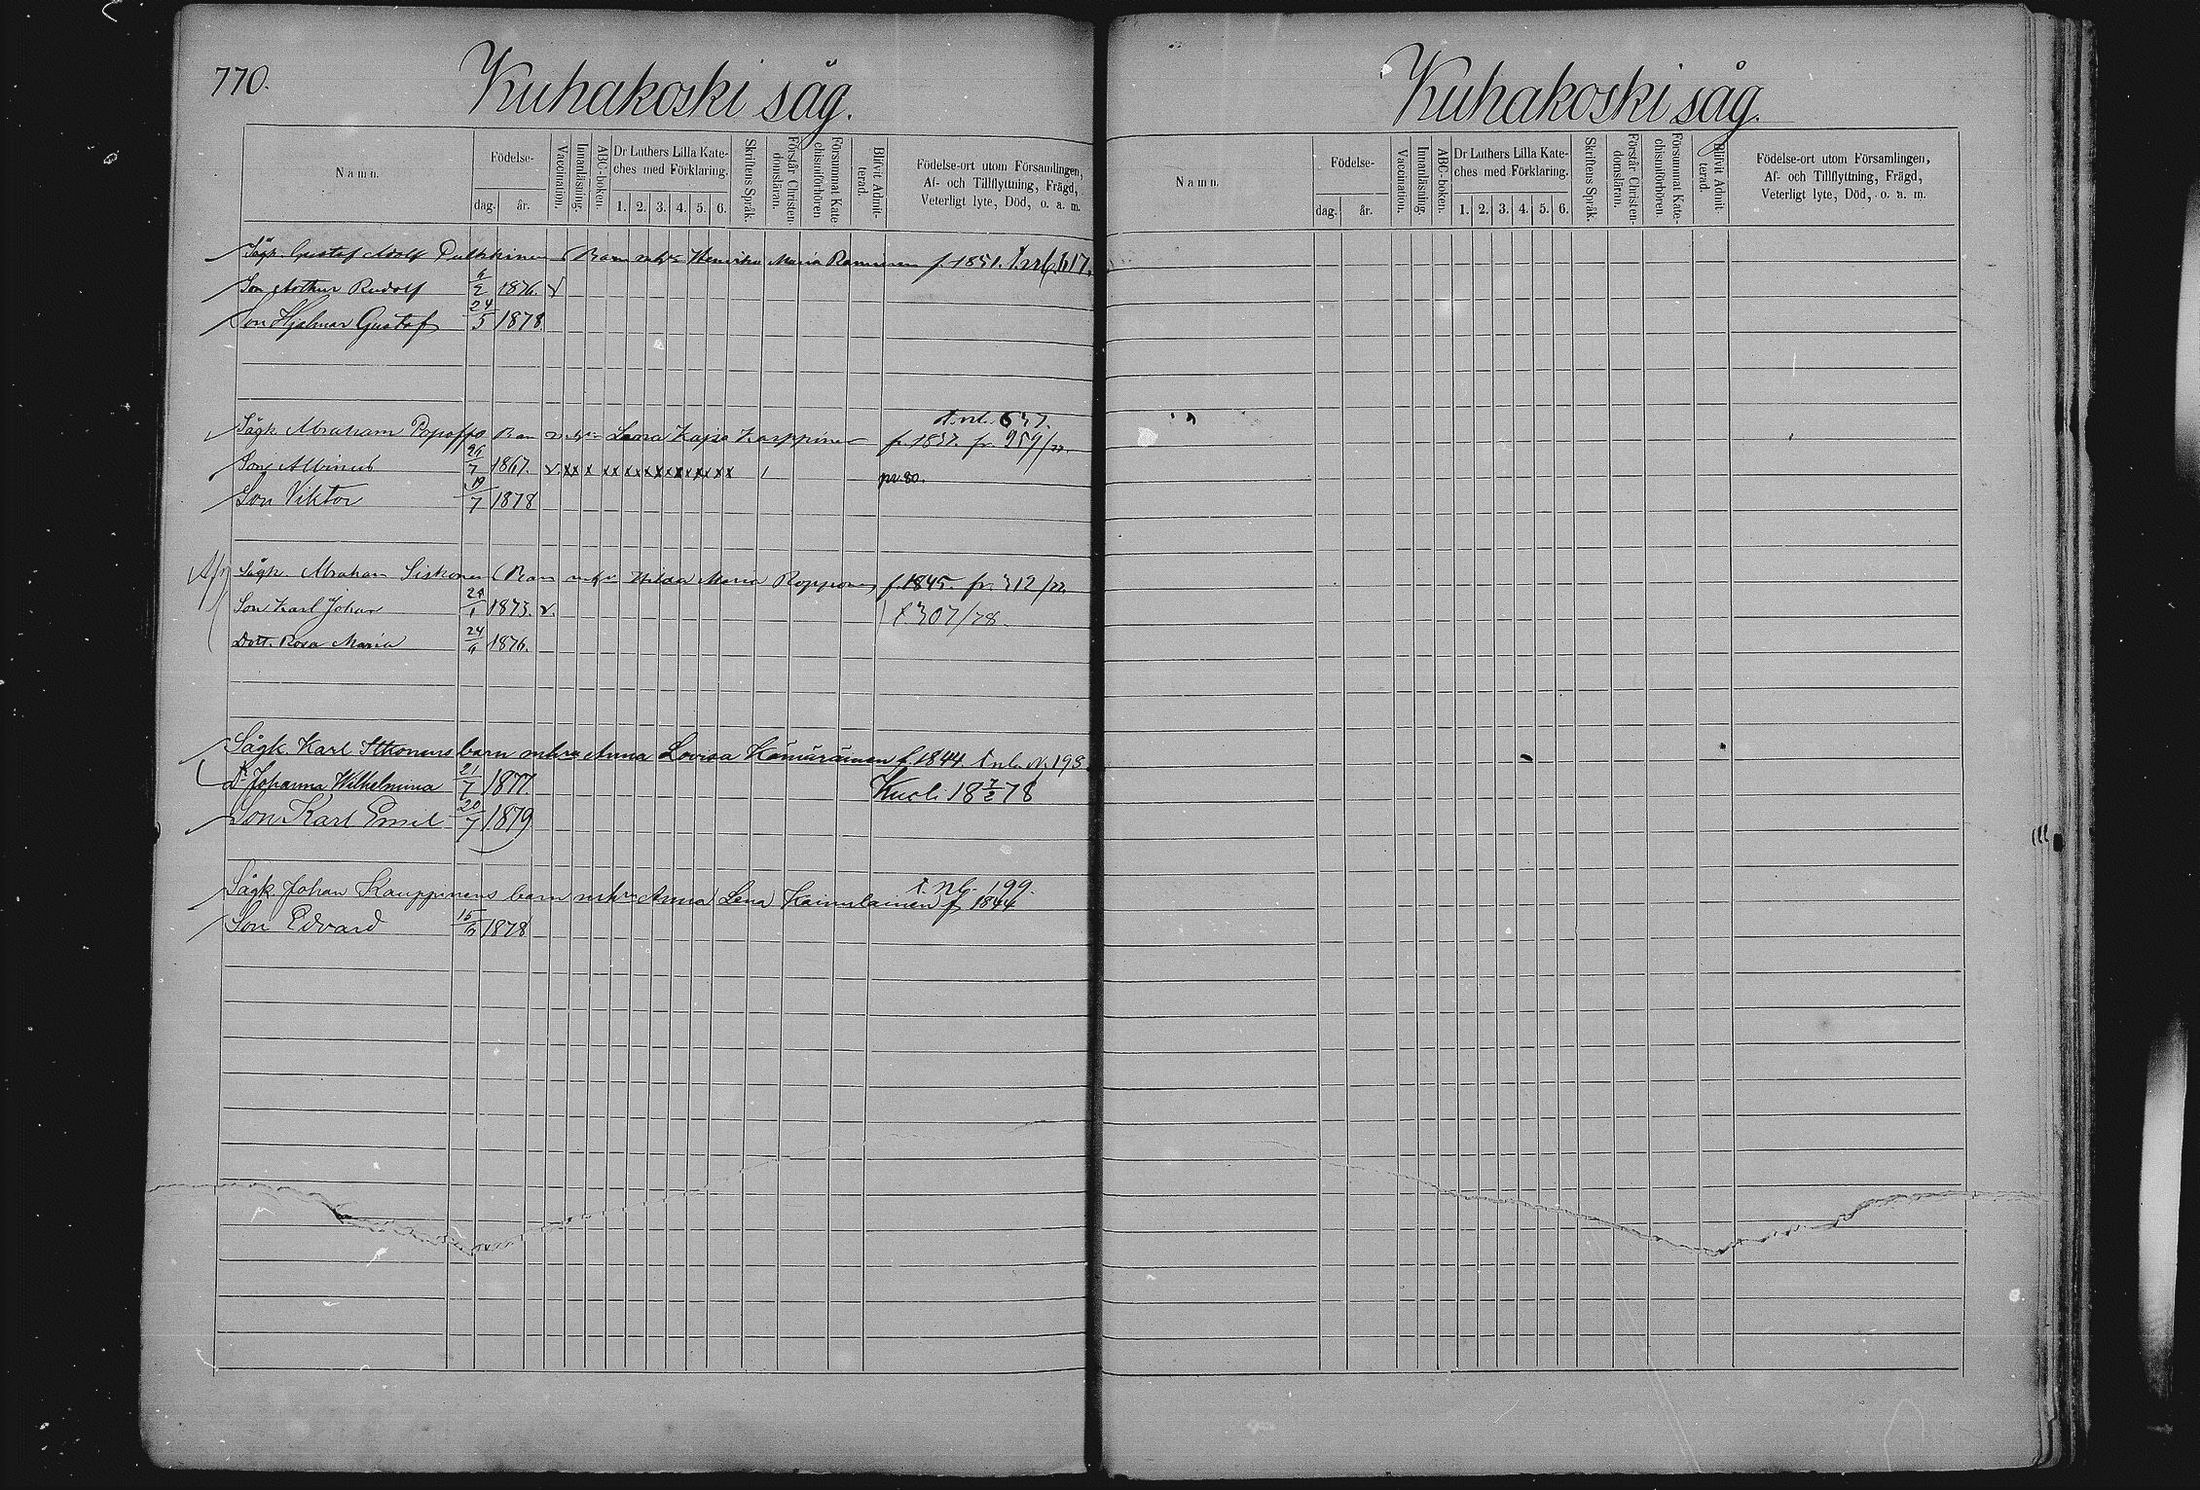 770.
Kuhakoski såg.
Namn.
Födelse-
dag.
år.
Vaccination.
Innanläsning.
ABC-boken.
Dr Luthers Lilla Kate-
ches med Förklaring.
1. 2. 3. 4. 5. 6.
Skriftens Språk.
Förstår Christen-
domsläran.
Försummat Kate-
chismiförhören
Blifvit Admit-
terad.
Födelse-ort utom Församlingen,
Af- och Tillflyttning, Frägd,
Veterligt lyte, Död, o. a. m.
Sågk. Gustaf Adolf Pulkkinen Barn m. hu Henrika Maria f. 1851. 617.
Son Arthur Rudolf 1876. v
Son Hjalmar Gustaf 24/5 1878
637.
Sågk. Abraham Barn m. hu Kajsa Karppinen f. 1837. fr. 959/
Son Albinus 26/7 1867. v. xx x xx x x x x x x x x x x 1 pr 80.
Son Viktor 19/7 1878
Sågk. Abraham Siskonen Barn m. hu Hilda Maria Ropponen f. 1845. fr. 312/
Son Karl Johan 1873. v. 307/78.
Dott. Rosa Maria 24/6 1876.
Sågk. Karl Itkonens barn m hu Anna Lovisa Kämäräinen f. 1844 193
Dr Johanna Wilhelmina 21/7 1877. Kuoli 18 7/2 78
Son Karl Emil 20/7 1879
199.
Sågk. Johan Kauppinens barn m hu Anna Lena Kainulainen f 1844
Son Edvard 1878
Kuhakoski såg.
Namn.
Födelse-
dag.
år.
Vaccination.
Innanläsning.
ABC-boken.
Dr Luthers Lilla Kate-
ches med Förklaring.
1. 2. 3. 4. 5. 6.
Skriftens Språk.
Förstår Christen-
domsläran.
Försummat Kate-
chismiförhören.
Blifvit Admit-
terad.
Födelse-ort utom Församlingen,
Af- och Tillflyttning, Frägd,
Veterligt lyte, Död, o. a. m.